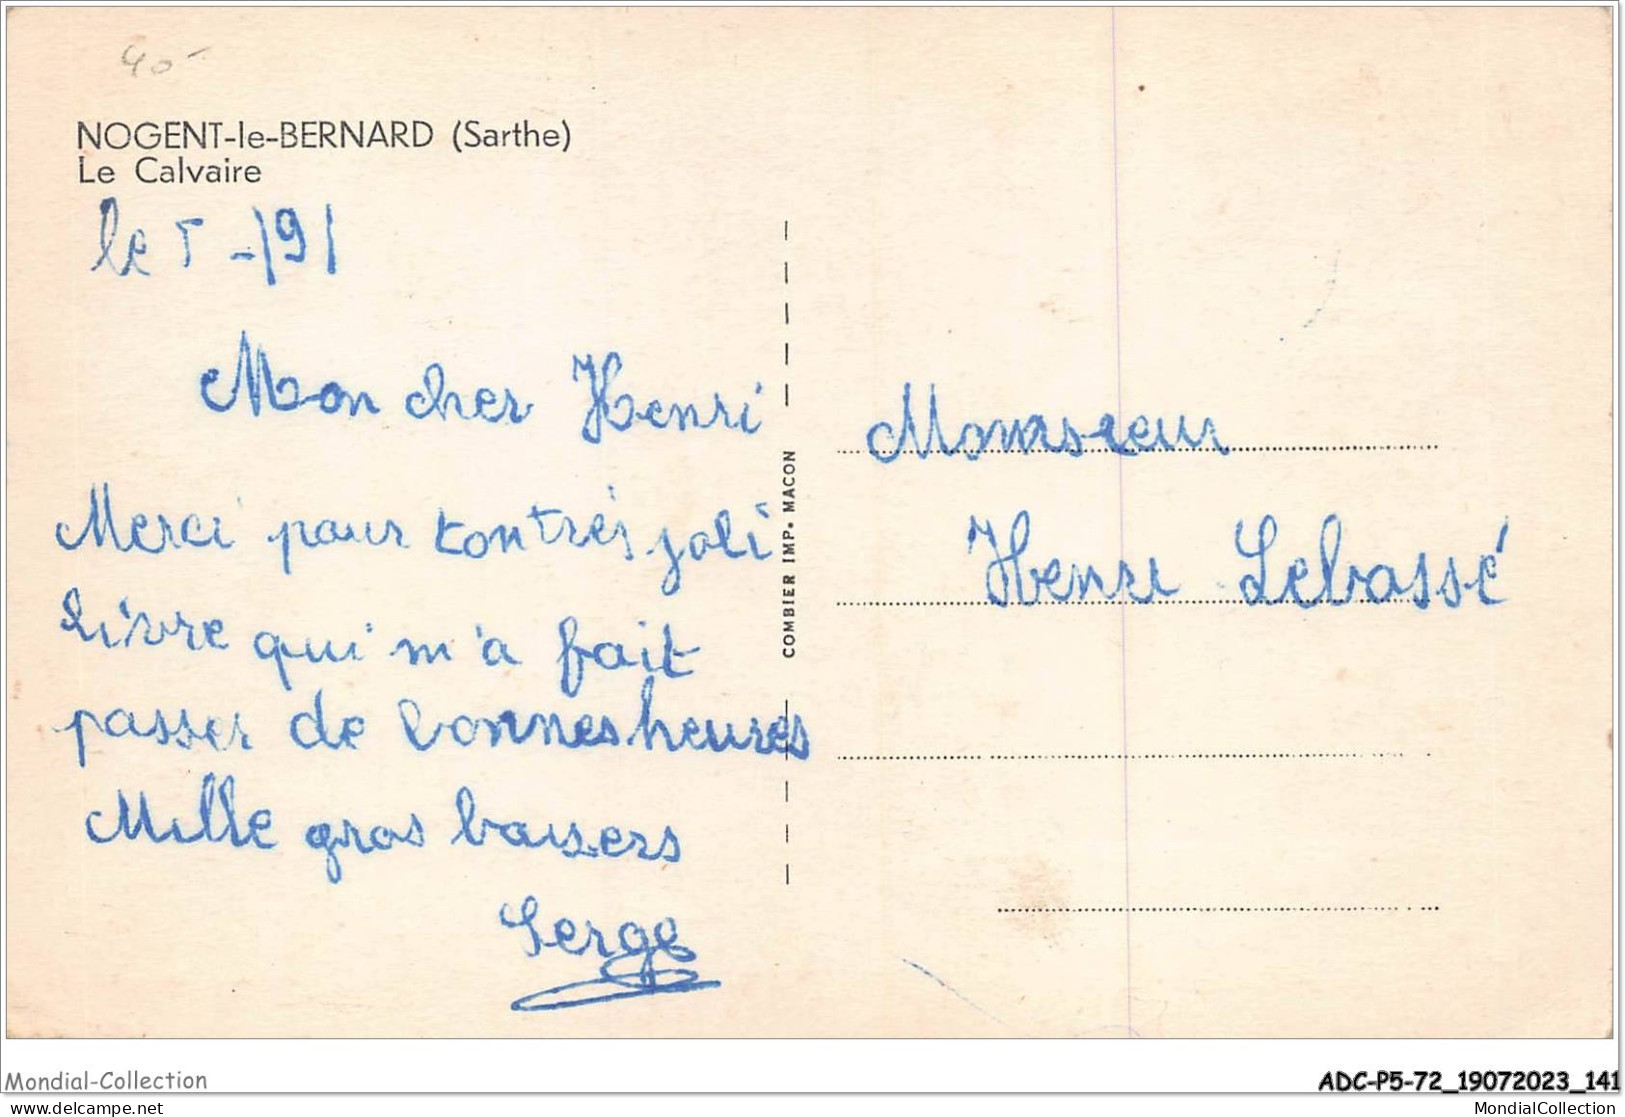 40-
NOGENT-le-BERNARD (Sarthe)
Le Calvaire
le 5 -191
Mon cher Henri
Merci pour ton très joli
livre qui m'a fait
passer de bonnes heures
Mille gros baisers
Serge
COMBIER IMP. MACON
Monsieur
Henri Lebossé
Mondial-Collection
ADC-P5-72_19072023_141
delcampe.net
MondialCollection